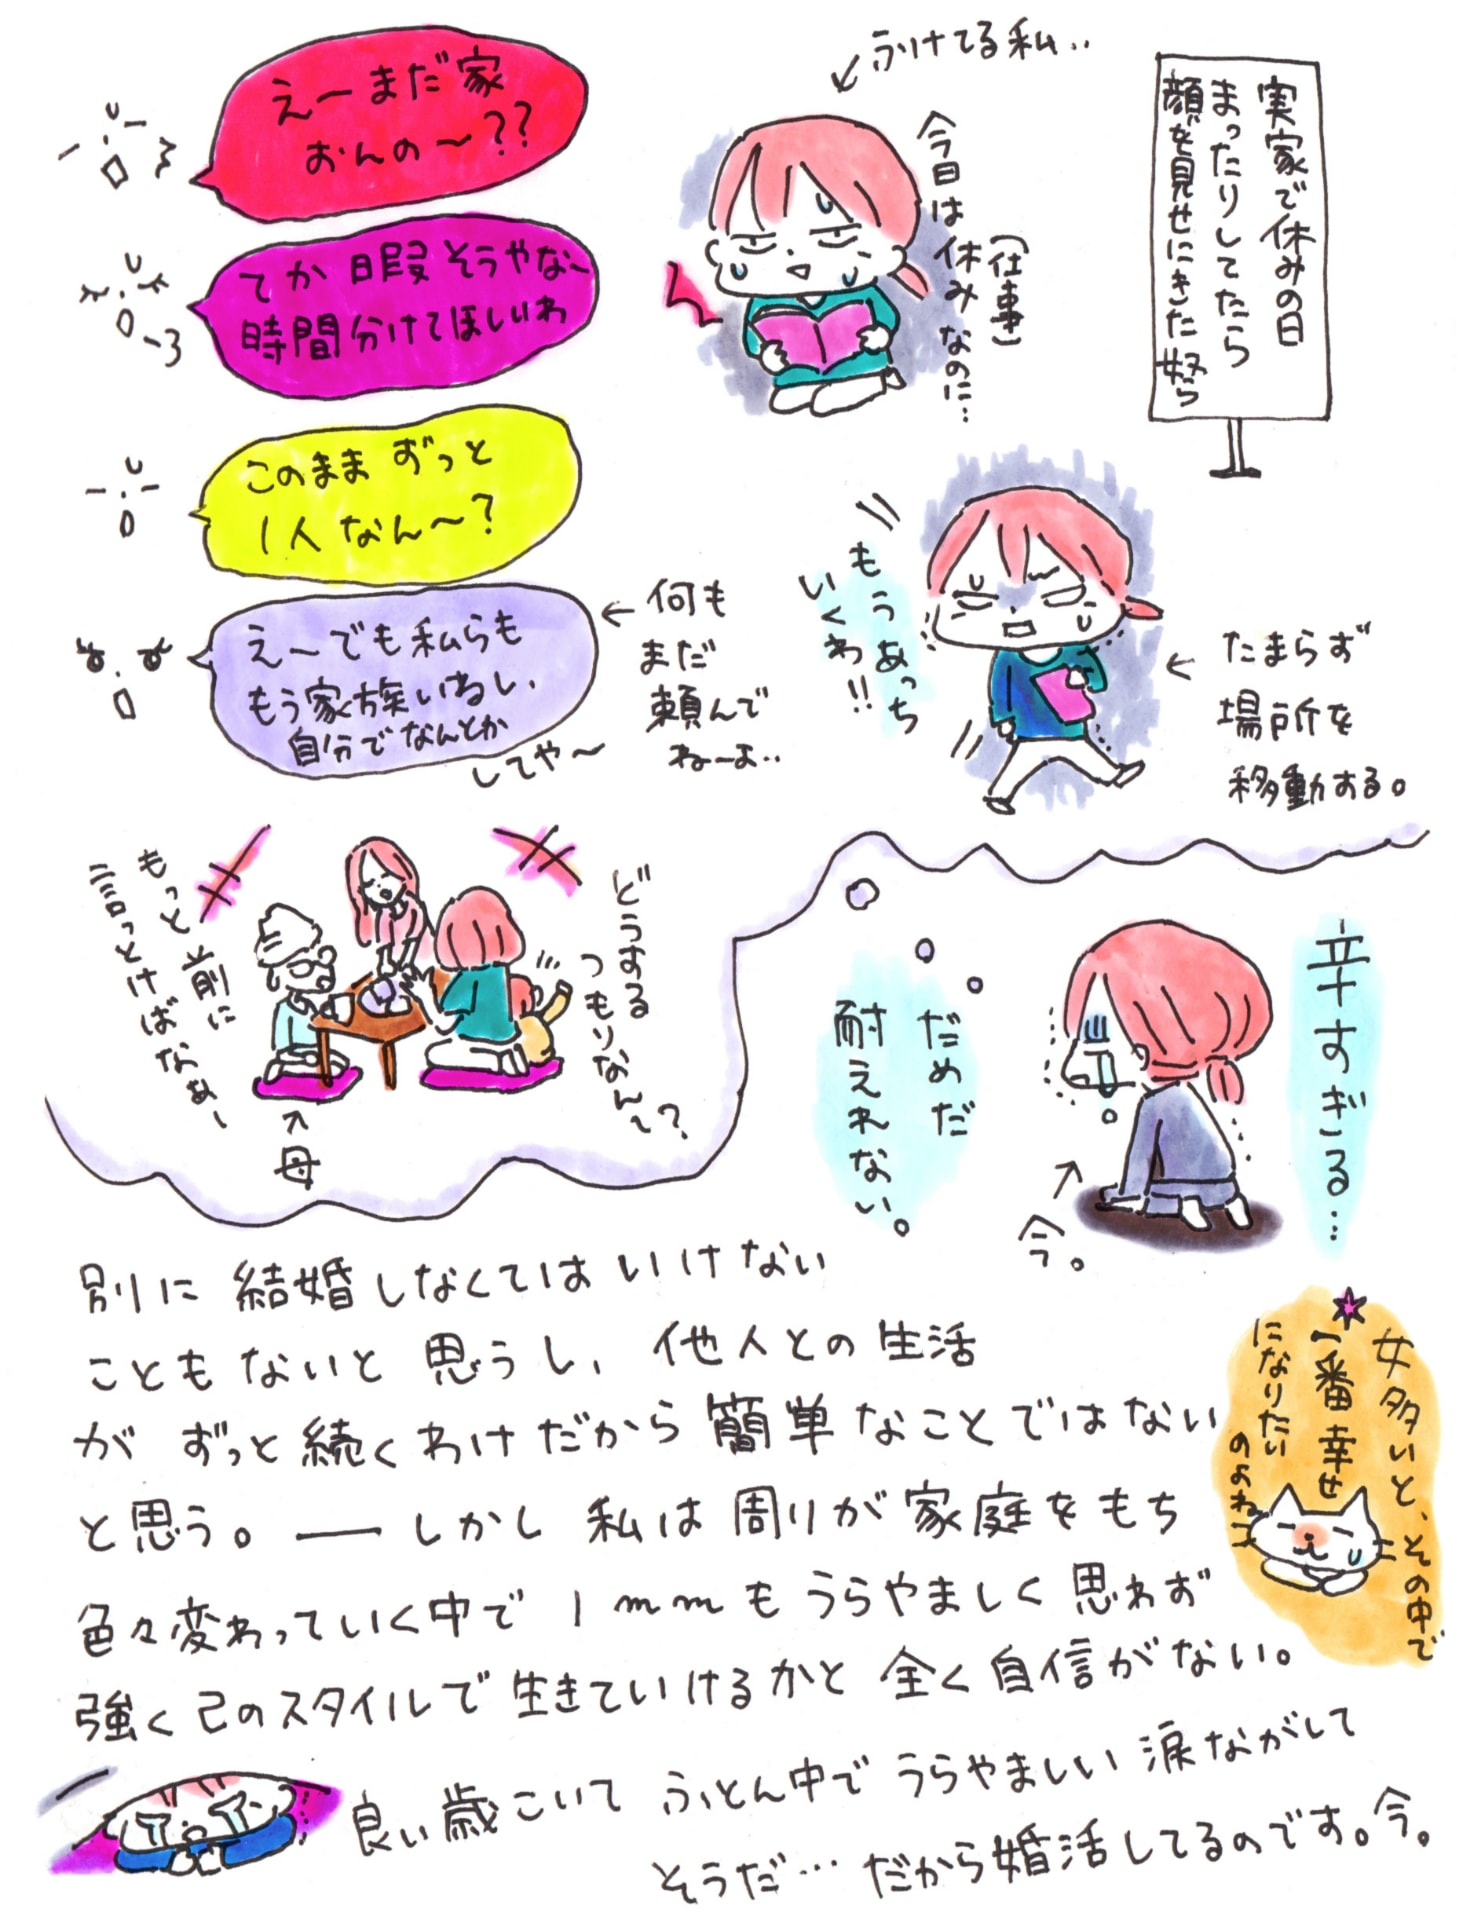 実家で休みの日
まったりしてたら
顔を見せにきた奴ら
ふけてる私..
今日は
(仕事)
休みなのに…
えーまだ家
おんの〜??
てか暇そうやな〜
時間分けてほしいわ
このままずっと
1人なん〜?
えーでも私らも
もう家族いるし、
自分でなんとか
してや〜
何も
まだ
頼んで
ねーよ..
もうあっち
いくわ!!
たまらず
場所を
移動する。
どうする
つもりなん〜?
もっと前に
言っとけばなぁー
母
辛すぎる…
だめだ
耐えれない。
今。
別に結婚しなくてはいけない
こともないと思うし、他人との生活
がずっと続くわけだから簡単なことではない
と思う。―しかし私は周りが家庭をもち
色々変わっていく中で1mmもうらやましく思わず
強く己のスタイルで生きていけるかと全く自信がない。
女多いと、その中で
一番幸せ
になりたい
のよね
良い歳こいてふとん中でうらやましい涙ながして
そうだ…だから婚活してるのです。今。